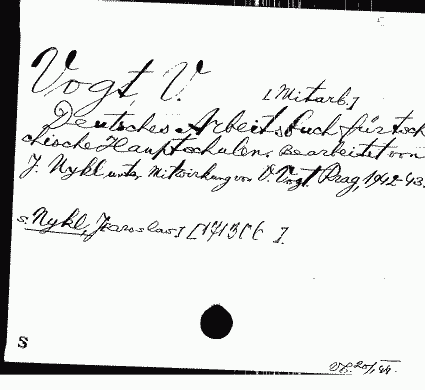 Vogt, V.
[Mitarb.]
Deutsches Arbeitsbuch für tsche
chische Hauptschulen. Bearbeitet von
J. Nykl unter Mitwirkung von V. Vogt. Prag, 1942-43.
s. Nykl, Jaroslav]
S